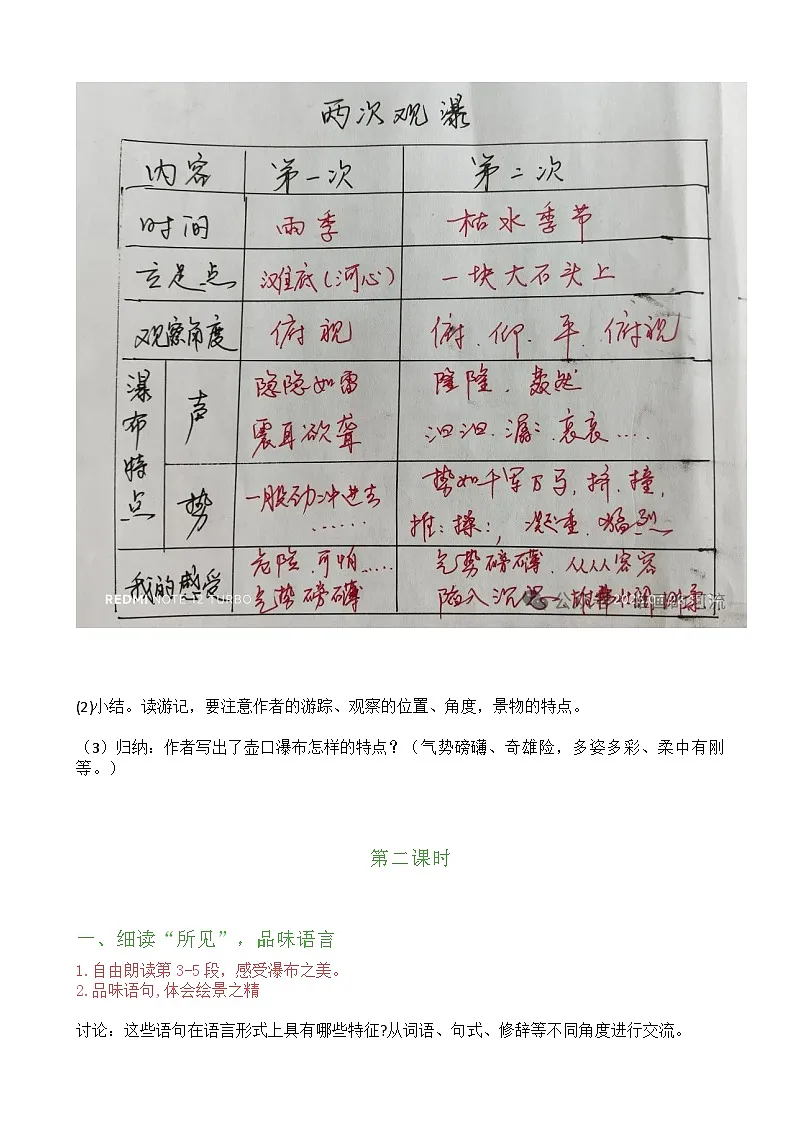 两次观瀑
内容 第一次 第二次
时间 雨季 枯水季节
立足点 滩底(河心) 一块大石头上
观察角度 俯视 俯.仰.平.俯视
瀑布特点
声 隐隐如雷 隆隆.轰然
震耳欲聋 汩汩.潺:.哀哀....
势 一股劲冲进去 势如千军万马,挤.撞,
...... 推:搡:,凝重.猛烈
我的感受 危险.可怕..... 气势磅礴.从从容容
气势磅礴 陷入沉思
REDMI NOTE 12 TURBO
(2)小结。读游记，要注意作者的游踪、观察的位置、角度，景物的特点。
（3）归纳：作者写出了壶口瀑布怎样的特点？（气势磅礴、奇雄险，多姿多彩、柔中有刚
等。）
第二课时
一、细读“所见”，品味语言
1.自由朗读第 3-5 段，感受瀑布之美。
2.品味语句,体会绘景之精
讨论：这些语句在语言形式上具有哪些特征?从词语、句式、修辞等不同角度进行交流。